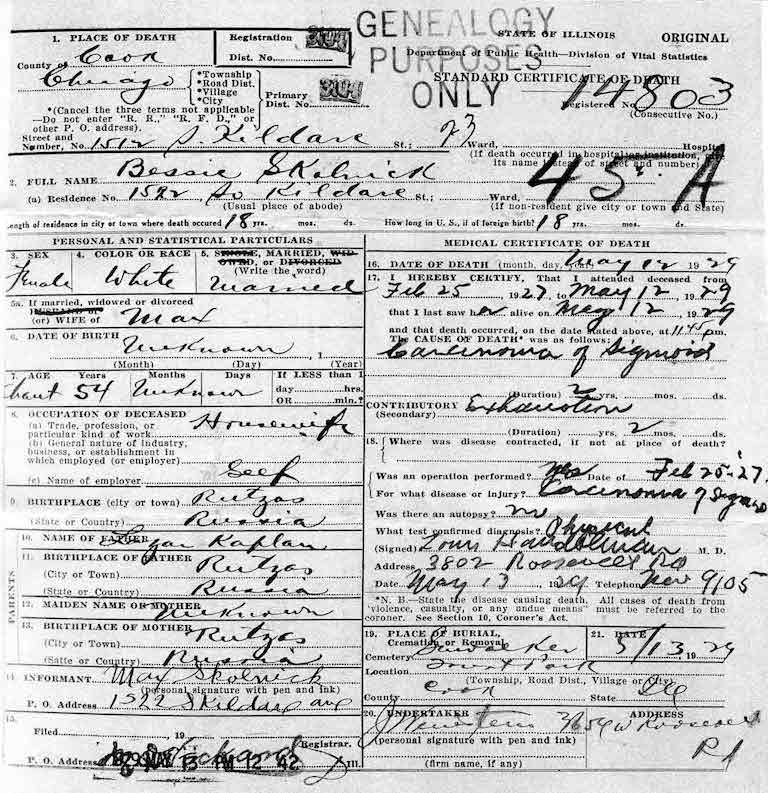 GENEALOGY
PURPOSES
ONLY
1. PLACE OF DEATH
Registration
Dist. No. 3104
County of Cook
Chicago
*Township
*Road Dist.
*Village
*City
Primary
Dist. No. 3104
*(Cancel the three terms not applicable
—Do not enter "R. R.," "R. F. D.," or
other P. O. address).
STATE OF ILLINOIS
ORIGINAL
Department of Public Health—Division of Vital Statistics
STANDARD CERTIFICATE OF DEATH
Registered No. 14803
(Consecutive No.)
Street and
Number, No. 1512 S. Kildare St.; 23 Ward,
(If death occurred in hospital or institution, give
its name instead of street and number)
45 A
2. FULL NAME Bessie Skolnick
(a) Residence No. 1522 So Kildare St.; Ward,
(Usual place of abode)
(If non-resident give city or town and State)
Length of residence in city or town where death occured 18 yrs. mos. ds.
How long in U. S., if of foreign birth? 18 yrs. mos. ds.
PERSONAL AND STATISTICAL PARTICULARS
3. SEX
Female
4. COLOR OR RACE
White
5. SINGLE, MARRIED, WIDOWED, OR DIVORCED
(Write the word)
Married
5a. If married, widowed or divorced
HUSBAND of
(or) WIFE of Max
6. DATE OF BIRTH Unknown, 1
(Month) (Day) (Year)
7. AGE Years Months Days
If LESS than 1
day hrs.
OR min.?
about 54 Unknown
8. OCCUPATION OF DECEASED
(a) Trade, profession, or
particular kind of work Housewife
(b) General nature of industry,
business, or establishment in
which employed (or employer)
(c) Name of employer Self
9. BIRTHPLACE (city or town) Rutzas
(State or Country) Russia
10. NAME OF FATHER Kaplan
11. BIRTHPLACE OF FATHER
(City or Town) Rutzas
(State or Country) Russia
PARENTS
12. MAIDEN NAME OF MOTHER Unknown
13. BIRTHPLACE OF MOTHER
(City or Town) Rutzas
(State or Country) Russia
14. INFORMANT Max Skolnick
(personal signature with pen and ink)
P. O. Address 1522 S Kildare ave
15.
Filed 19
Registrar.
P. O. Address
1929 MAY 13 PM 12 42
Ill.
MEDICAL CERTIFICATE OF DEATH
16. DATE OF DEATH (month, day, year) May 12 1929
17. I HEREBY CERTIFY, That I attended deceased from
Feb 25 1927, to May 12, 1929
that I last saw her alive on May 12, 1929
and that death occurred, on the date stated above, at 11:45 pm.
The CAUSE OF DEATH* was as follows:
Carcinoma of Sigmoid
(Duration) 2 yrs. mos. ds.
CONTRIBUTORY Exhaustion
(Secondary)
(Duration) yrs. 2 mos. ds.
18. Where was disease contracted, if not at place of death?
Was an operation performed? yes Date of Feb 25-27
For what disease or injury? Carcinoma of Sigmoid
Was there an autopsy? no
What test confirmed diagnosis? Physical
(Signed) Louis M. D.
Address 3802 Roosevelt Rd
Date May 13, 1929 Telephone Nev 9105
*N. B.—State the disease causing death. All cases of death from
"violence, casualty, or any undue means" must be referred to the
coroner. See Section 10, Coroner's Act.
19. PLACE OF BURIAL,
Cremation or Removal
Cemetery
Location Forest Park
(Township, Road Dist., Village or City)
County Cook State Ill
21. DATE
5/13 1929
20. UNDERTAKER
ADDRESS
W Roosevelt
Rd
(personal signature with pen and ink)
(firm name, if any)